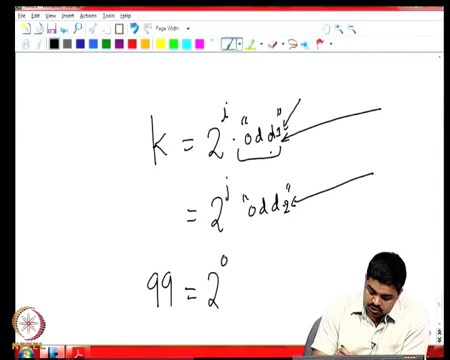 File Edit View Insert Actions Tools Help
Page Width
k = 2^i · "odd1"
= 2^j "odd2"
99 = 2^0